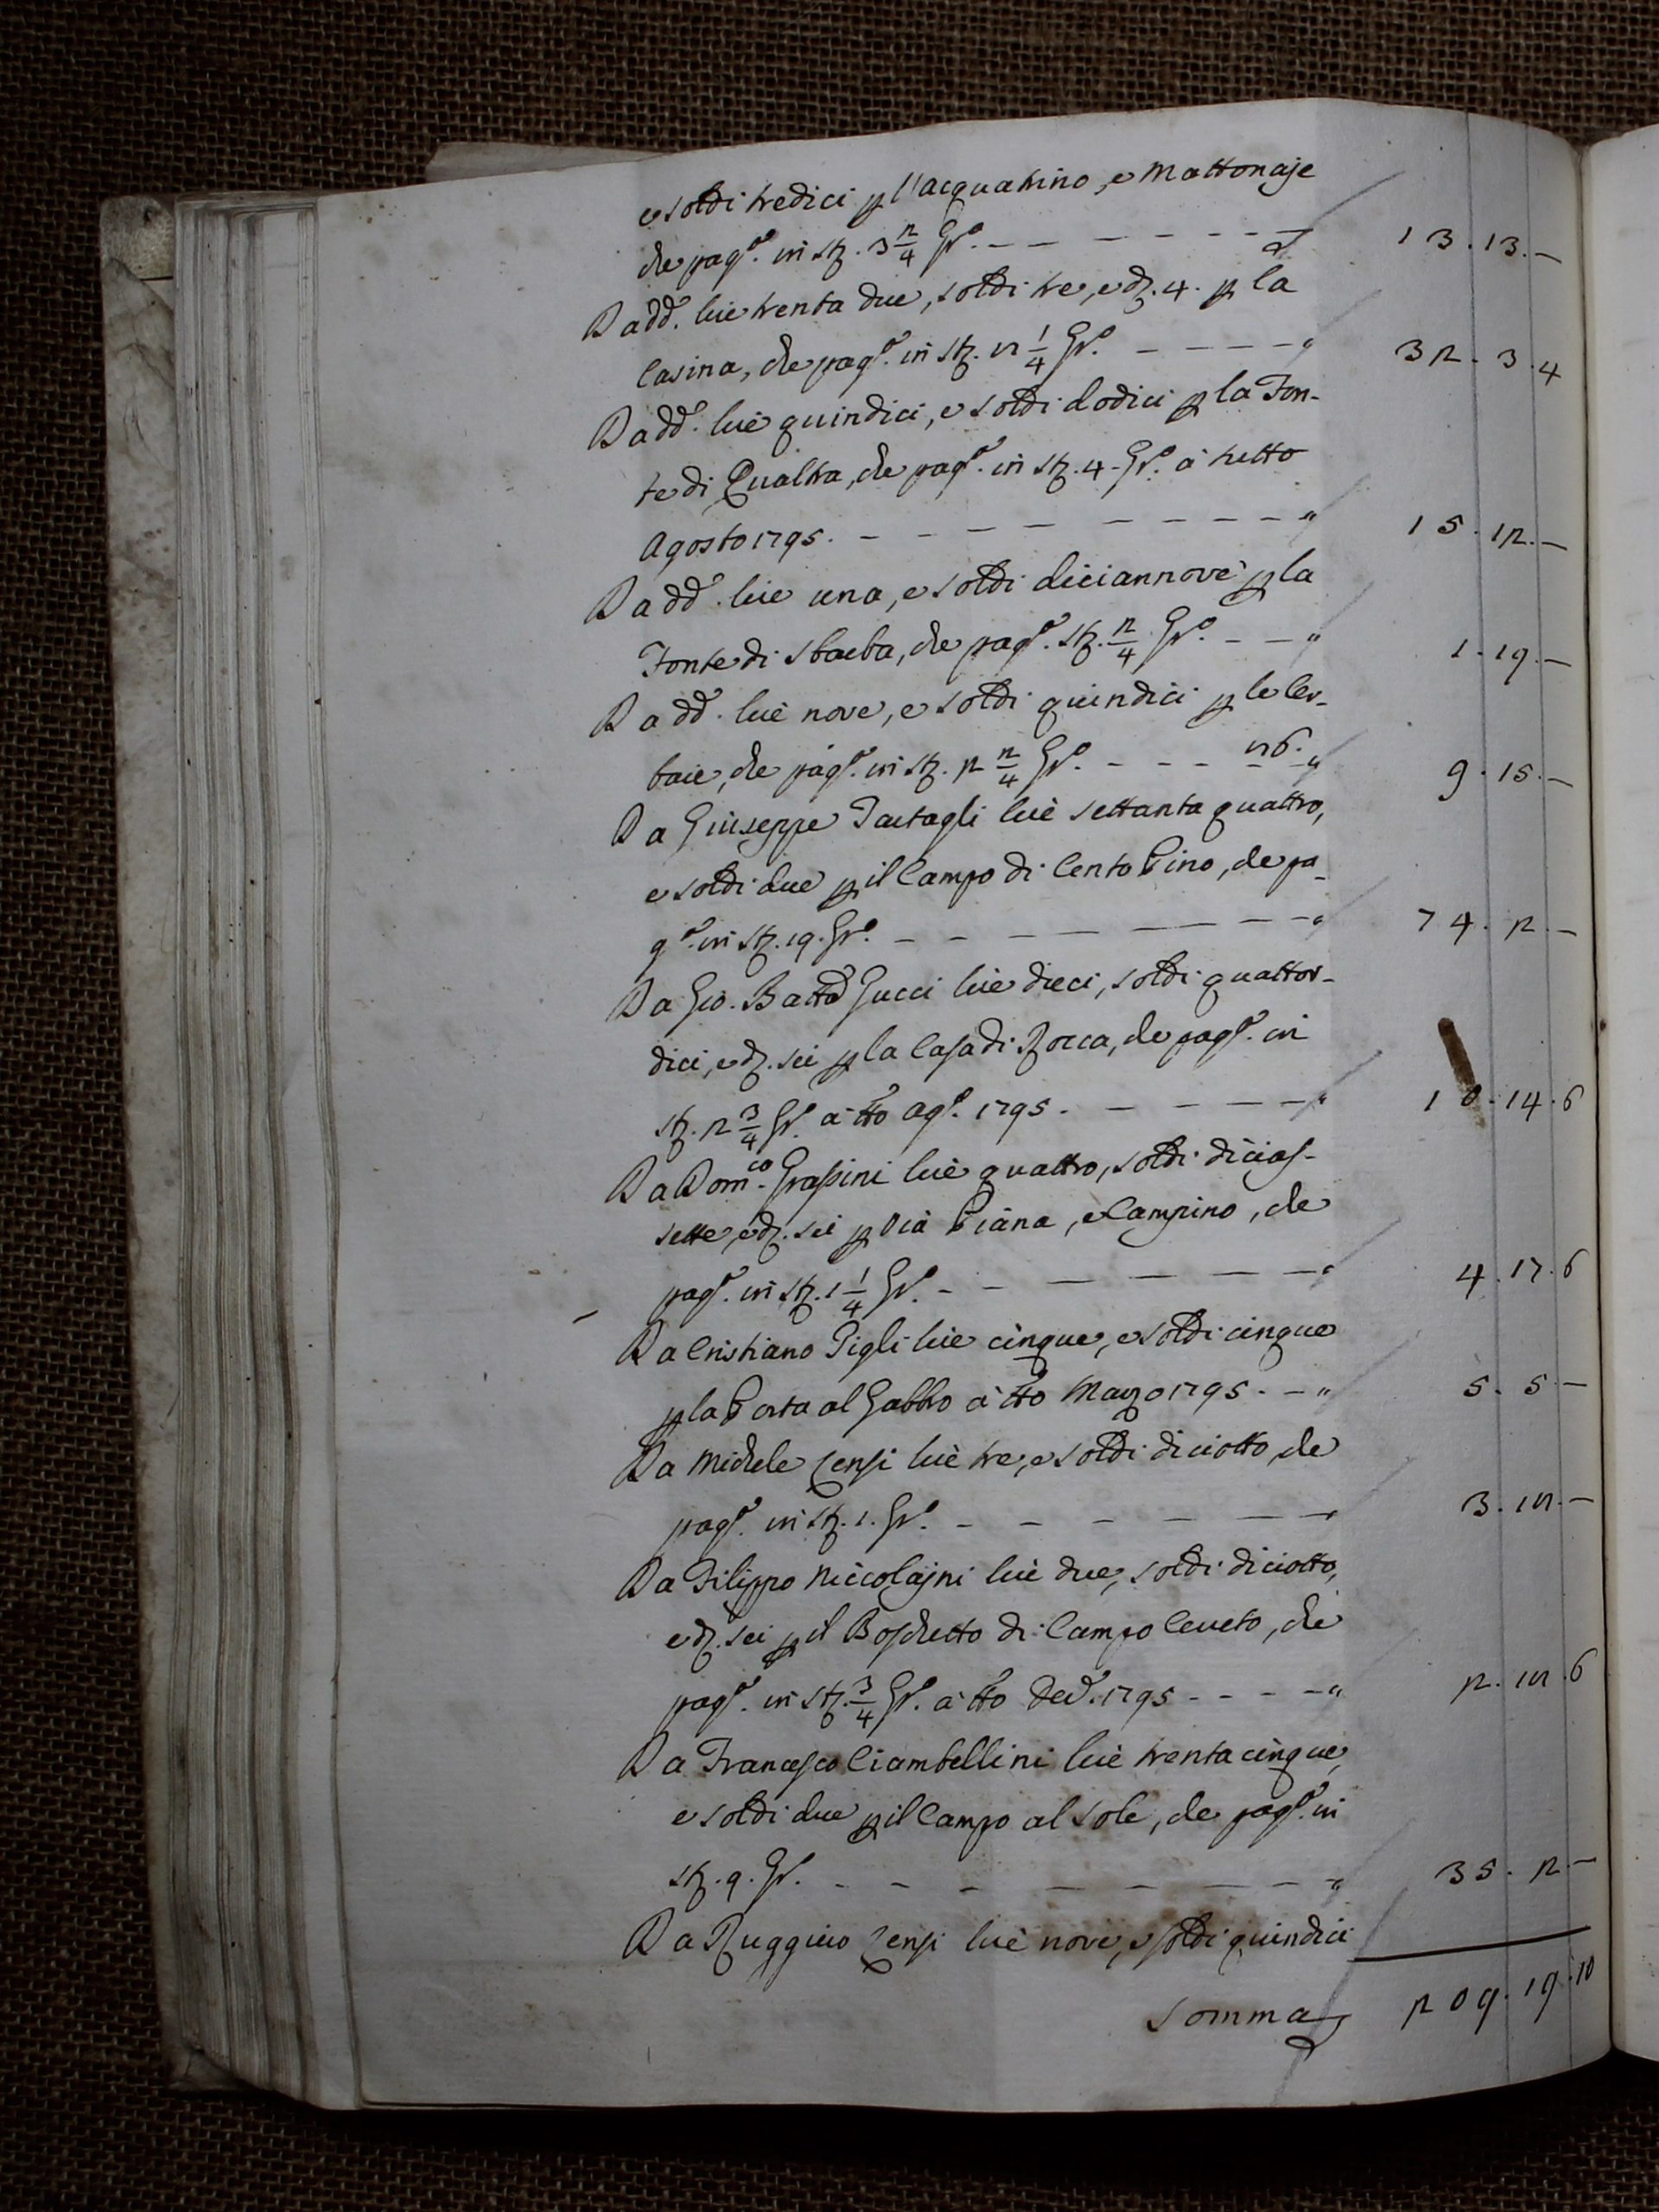 e soldi tredici p l'acquatrino, e Mattonaje
che pag.º in st. 3 2/4 Gr.º - - - - - - - £ 13.13.-
Da dd.º lire trenta due, soldi tre, e d. 4. p la
Casina, che pag.º in st. 8 1/4 Gr.º - - - - " 32.3.4
Da dd.º lire quindici, e soldi dodici p la Fon-
te di Qualtra, che pag.º in st. 4. Gr.º a tutto
Agosto 1795. - - - - - - - - " 15.12.-
Da dd.º lire una, e soldi diciannove p la
Fonte di Sbarba, che pag.º st. 2/4 Gr.º - - " 1.19.-
Da dd.º lire nove, e soldi quindici p le Cer-
baie, che pag.º in st. 2 2/4 Gr.º - - - 86. " 9.15.-
Da Giuseppe Partagli lire settanta quattro,
e soldi due p il Campo di Cento Pino, che pa-
g.º in st. 19. Gr.º - - - - - - - " 74.2.-
Da Gio. Batta Gucci lire dieci, soldi quattor-
dici, e d. sei p la Casa di Rocca, che pag.º in
st. 2 3/4 Gr.º a tto Ag.º 1795. - - - - " 10.14.6
Da Dom.co Grassini lire quattro, soldi dicias-
sette, e d. sei p Via Piana, e Campino, che
pag.º in st. 1 1/4 Gr.º - - - - - - " 4.17.6
Da Cristiano Pigli lire cinque, e soldi cinque
p la Porta al Gabbro a tto Marzo 1795. - " 5.5.-
Da Michele Censi lire tre, e soldi diciotto, che
pag.º in st. 1. Gr.º - - - - - - " 3.18.-
Da Filippo Niccolajni lire due, soldi diciotto,
e d. sei p il Boschetto di Campo Cerreto, che
pag.º in st. 3/4 Gr.º a tto Dec.º 1795 - - - - " 2.18.6
Da Francesco Ciambellini lire trenta cinque,
e soldi due p il Campo al Sole, che pag.º in
st. 9. Gr.º - - - - - - - - " 35.2.-
Da Ruggiero Censi lire nove, e soldi quindici
Somma 209.19.10